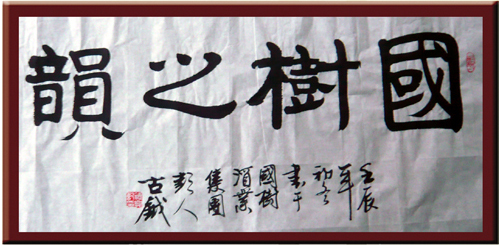 國樹之韻
壬辰
年
初
書于
國樹
酒業
集團
彭人
古